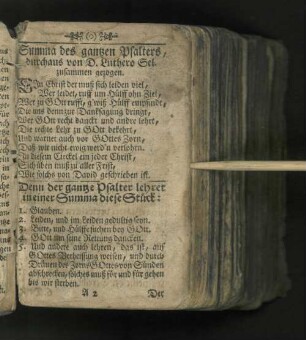 (o)
Summa des gantzen Psalters,
durchaus von D. Luthero Sel.
zusammen gezogen.
EIn Christ der muß sich leiden viel,
Wer leidet, ruff um Hülff ohn Ziel,
Wer zu GOtt rufft, g'wiß Hülff empfindt,
Die uns denn zur Dancksagung bringt,
Wer GOtt recht danckt und andre lehrt,
Die rechte Lehr zu GOtt bekehrt,
Und warnet auch vor GOttes Zorn,
Daß wir nicht ewig werd'n verlohrn.
In diesem Circkel ein jeder Christ,
Sich üben muß zu aller Frist,
Wie solchs von David geschrieben ist.
Denn der gantze Psalter lehret
in einer Summa diese Stück:
1. Glauben.
2. Leiden, und im Leiden gedultig seyn.
3. Bitte, und Hülffe suchen bey GOtt.
4. GOtt um seine Rettung dancken.
5. Und andere auch lehren, das ist, auf
GOttes Verheissung weisen, und durch
Dräuen des Zorns GOttes von Sünden
abschrecken, solches muß für und für gehen
bis wir sterben.
A 2
Der